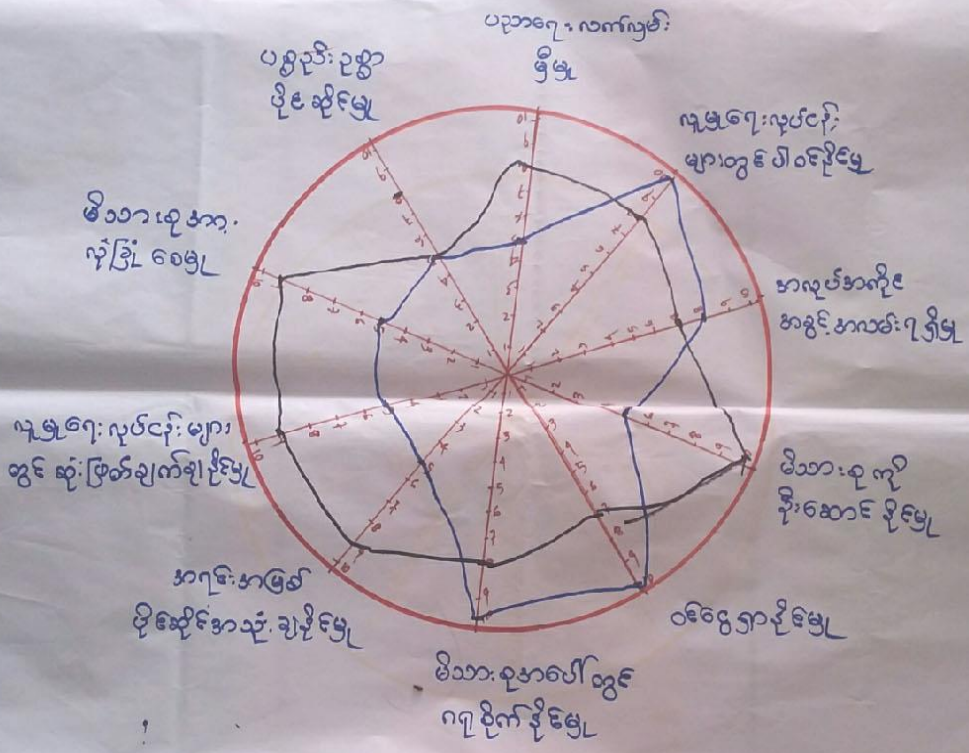 ပညာရေး လက်လှမ်း
မှီမှု
လူမှုရေးလုပ်ငန်း
များတွင် ပါဝင်နိုင်မှု
အလုပ်အကိုင်
အခွင့်အလမ်း ရရှိမှု
မိသားစုကို
ဦးဆောင်နိုင်မှု
ဝင်ငွေရှာနိုင်မှု
မိသားစုအပေါ်တွင်
ဂရုစိုက်နိုင်မှု
အရင်းအမြစ်
ပိုင်ဆိုင်အသုံးချနိုင်မှု
လူမှုရေးလုပ်ငန်းများ
တွင် ဆုံးဖြတ်ချက်ချနိုင်မှု
မိသားစုအား
လုံခြုံစေမှု
ပစ္စည်းဥစ္စာ
ပိုင်ဆိုင်မှု